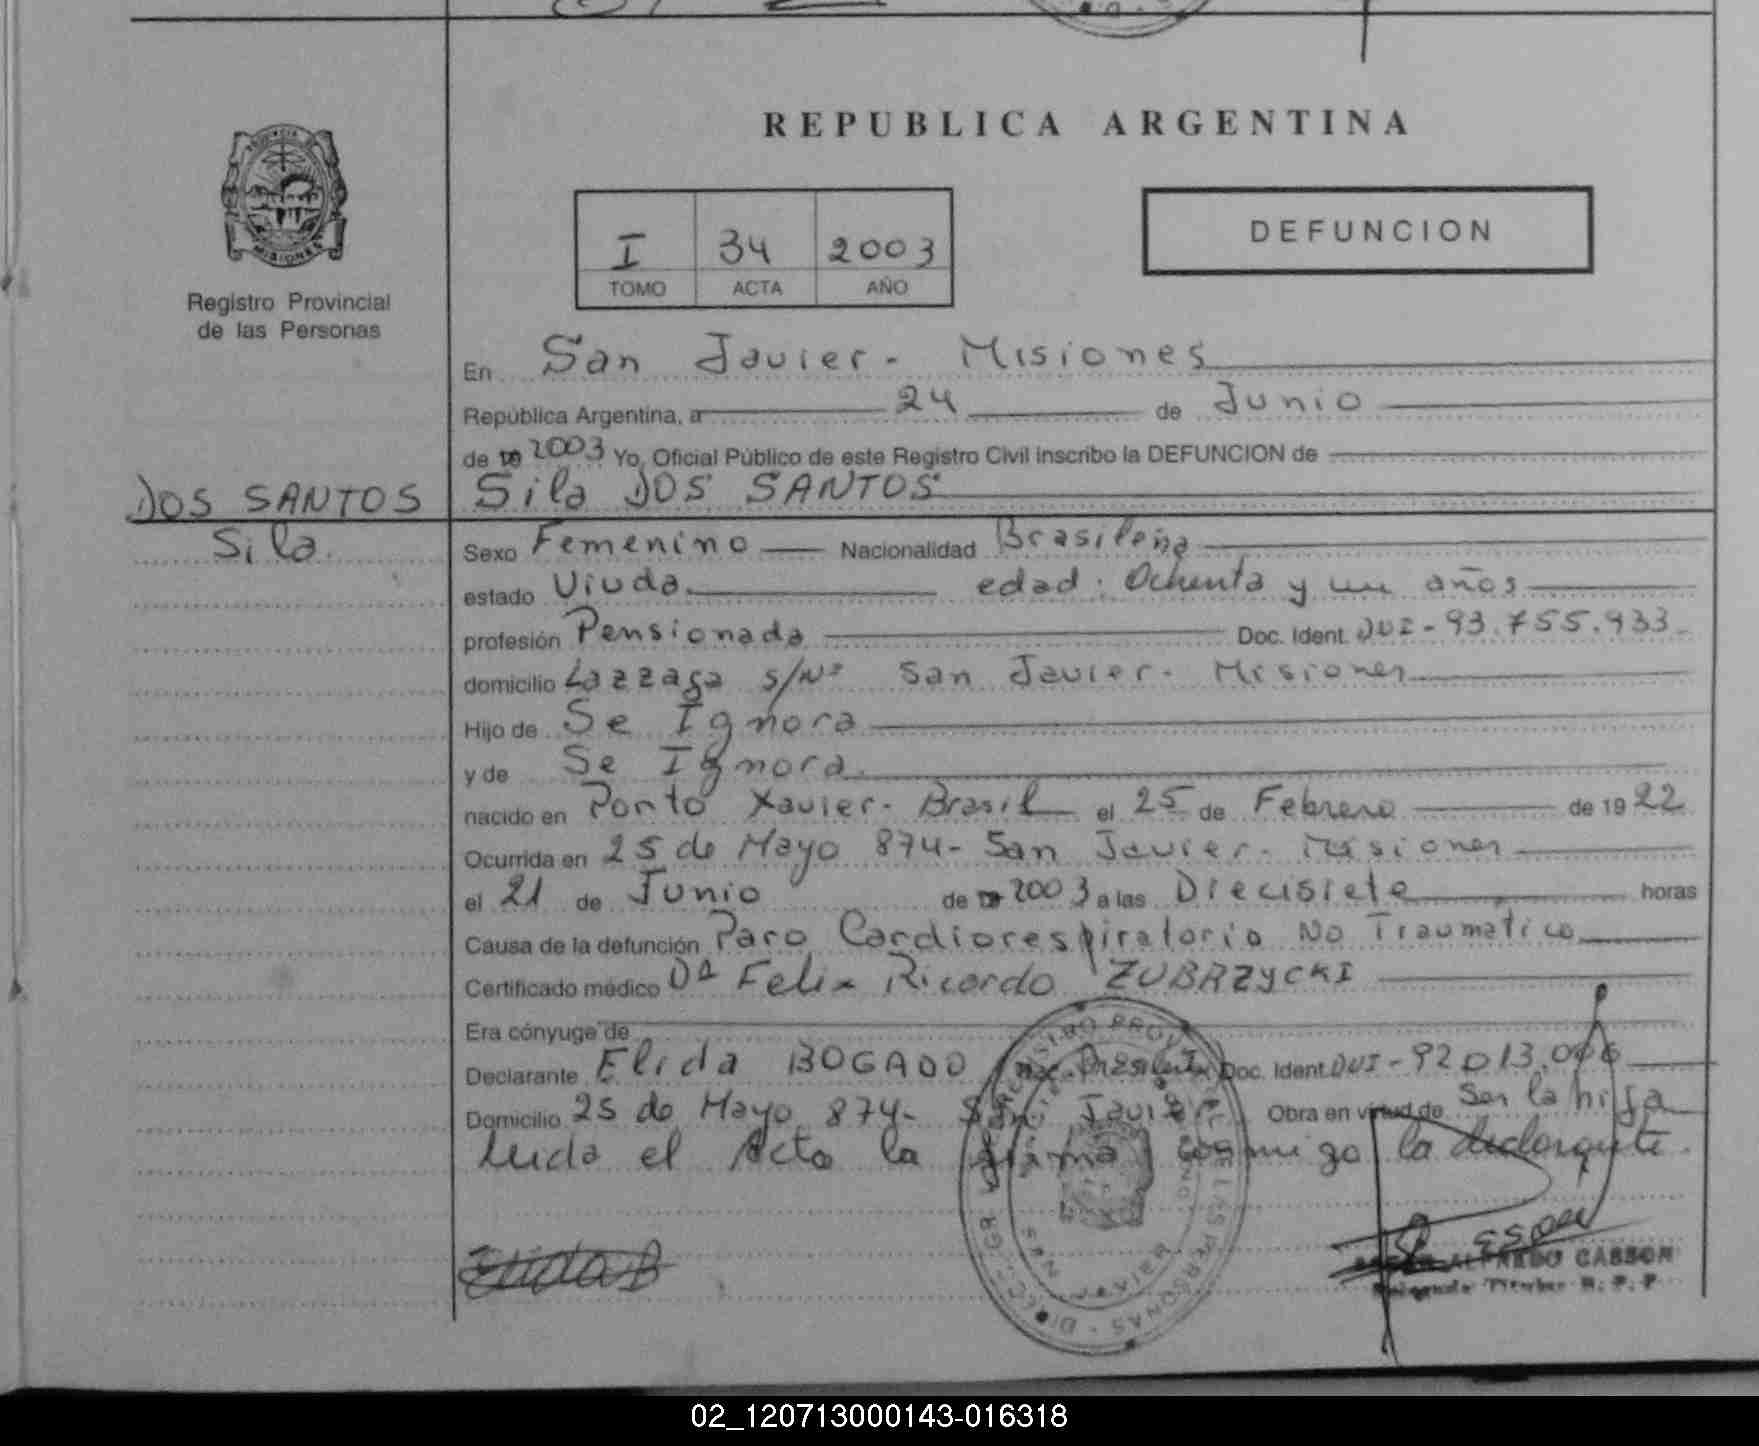 REPUBLICA ARGENTINA
MISIONES
Registro Provincial
de las Personas
I 34 2003
TOMO ACTA AÑO
DEFUNCION
En San Javier - Misiones
República Argentina, a 24 de Junio
de 2003 Yo, Oficial Público de este Registro Civil inscribo la DEFUNCION de
DOS SANTOS Sila DOS SANTOS
Sila
Sexo Femenino Nacionalidad Brasileña
estado Viuda edad: Ochenta y un años
profesión Pensionada Doc. Ident. DUI-93.755.933
domicilio Lazzaga s/Nº San Javier - Misiones
Hijo de Se Ignora
y de Se Ignora
nacido en Porto Xavier - Brasil el 25 de Febrero de 1922
Ocurrida en 25 de Mayo 874 - San Javier - Misiones
el 21 de Junio de 2003 a las Diecisiete horas
Causa de la defunción Paro Cardiorespiratorio No Traumatico
Certificado médico Dr Felix Ricardo ZUBRZYCKI
Era cónyuge de
Declarante Elida BOGADO Doc. Ident. DUI-92013.006
Domicilio 25 de Mayo 874 - San Javier Obra en virtud de Ser la hija
leida el Acta la firma conmigo la declarante
Elida B
ALFREDO GASSON
Titular R. P. P
02_120713000143-016318